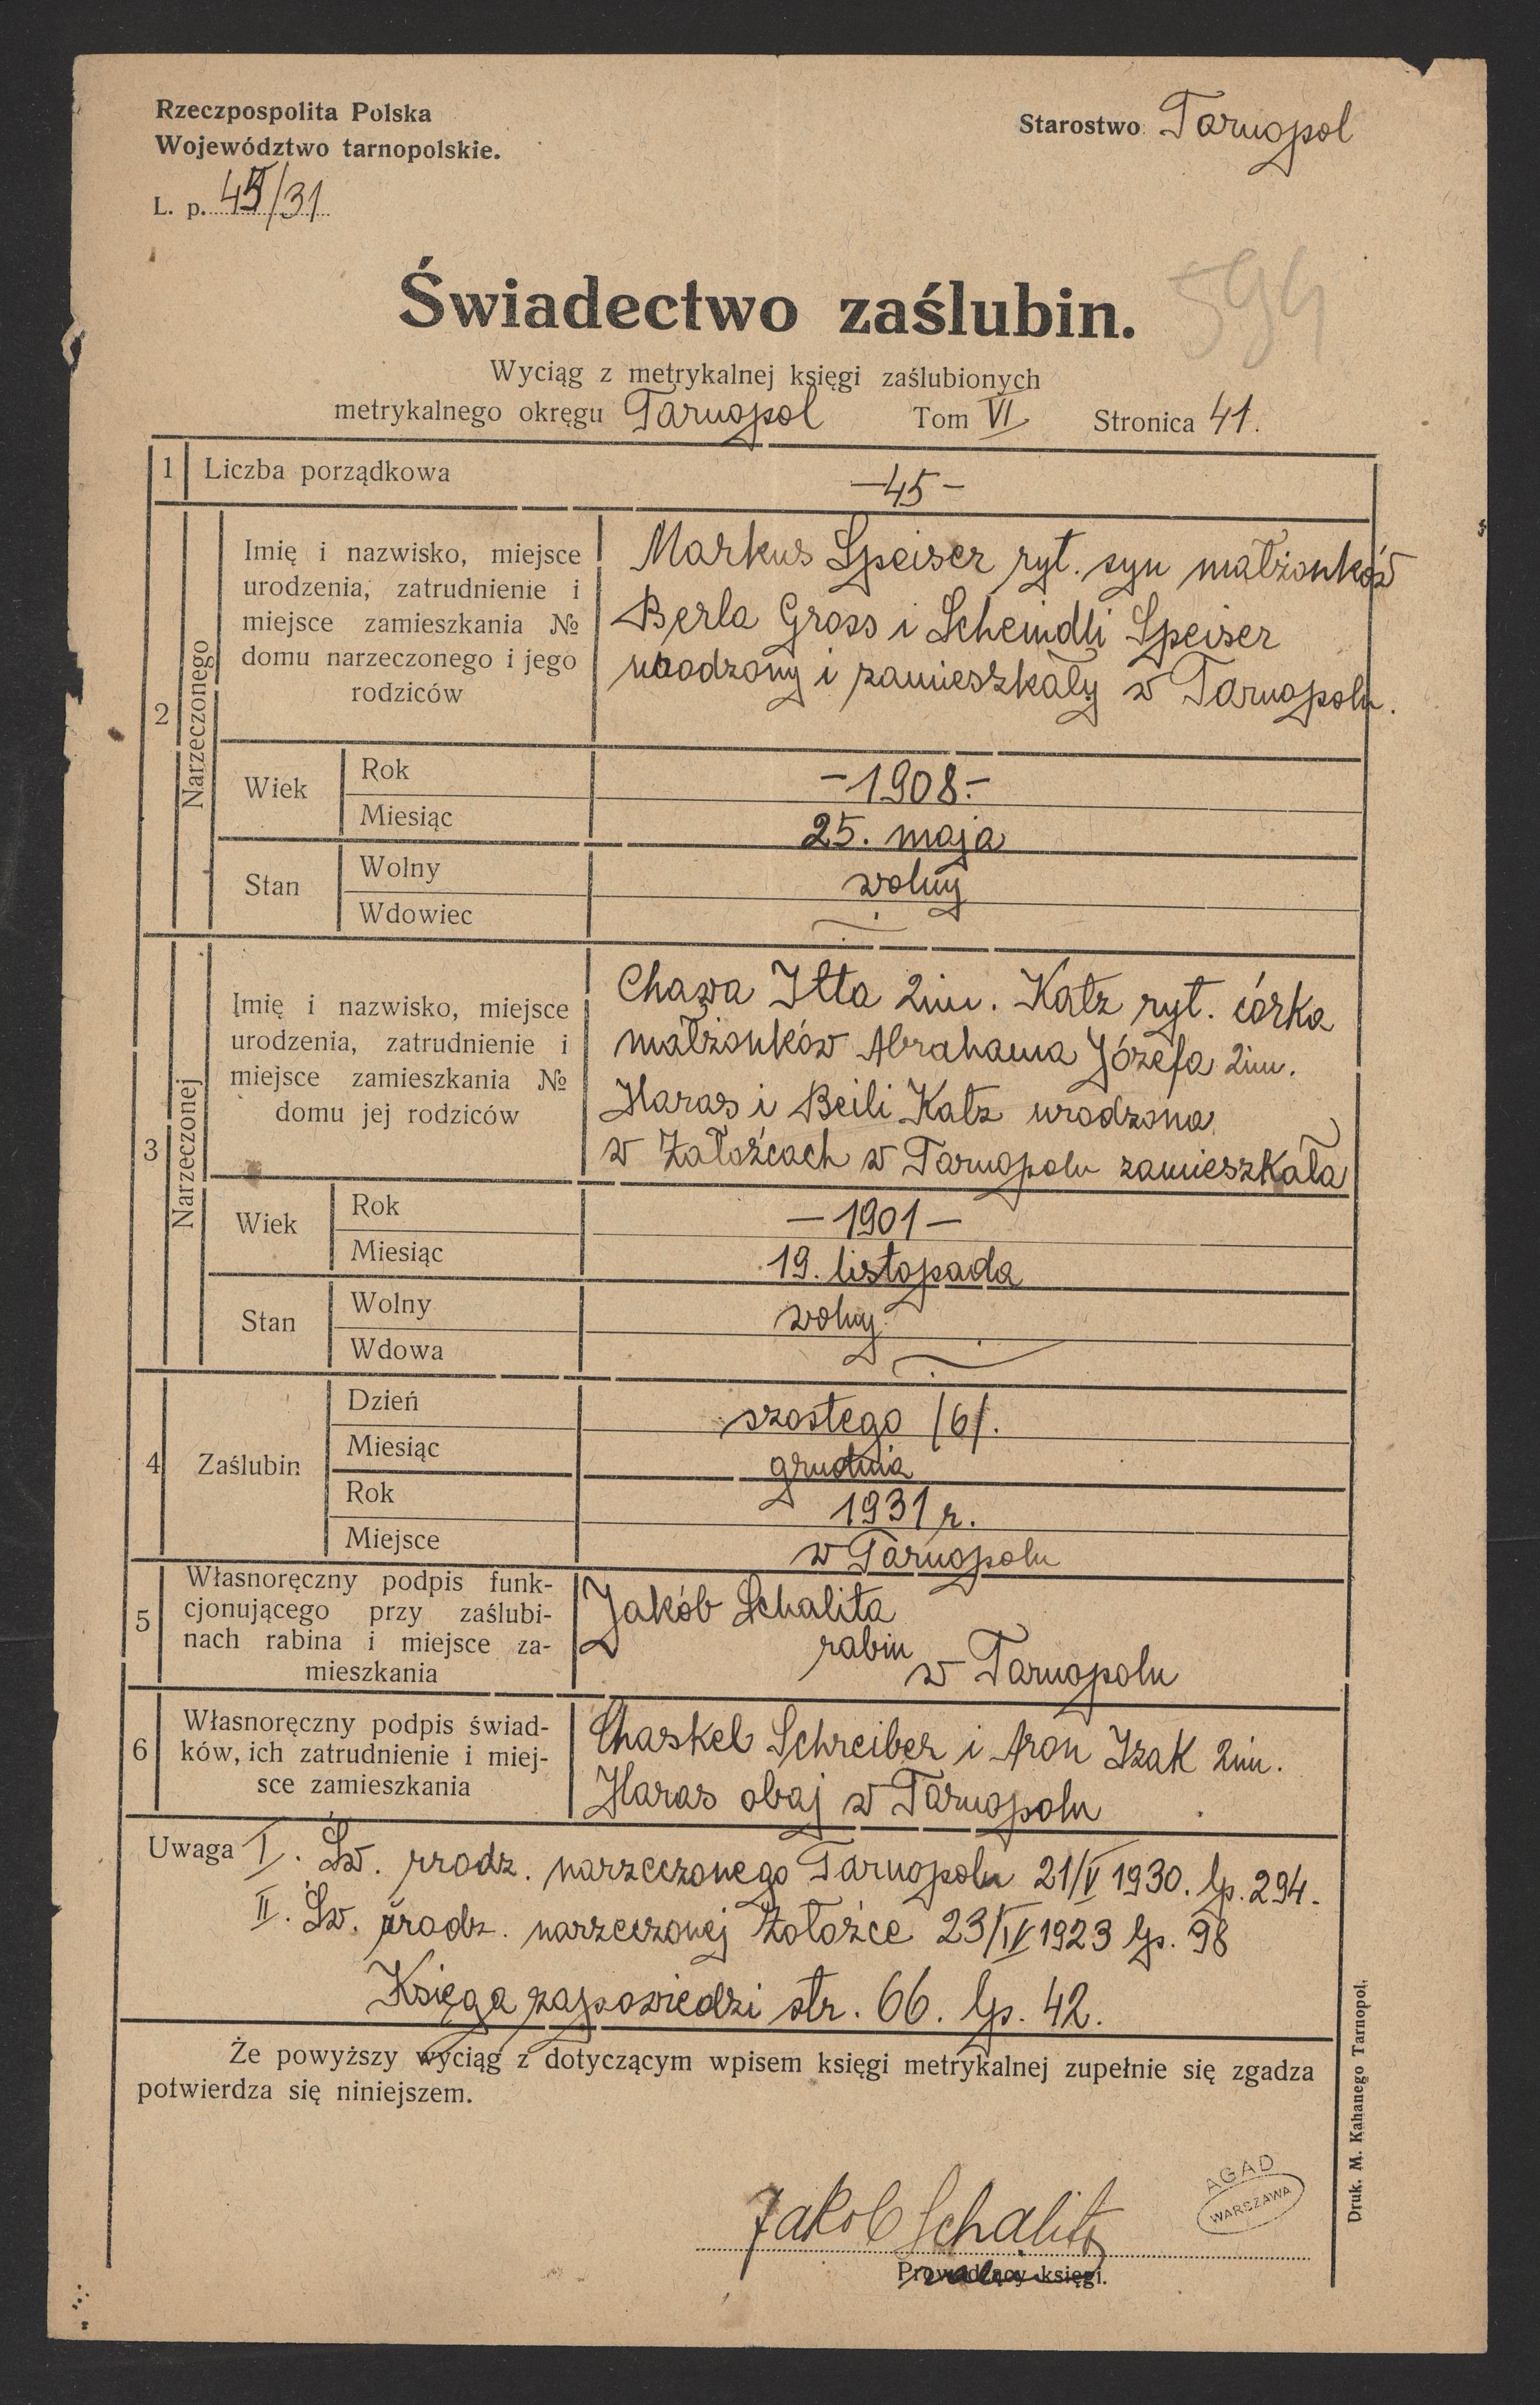 Rzeczpospolita Polska
Województwo tarnopolskie.
Starostwo Tarnopol
L. p. 45/31
594
Świadectwo zaślubin.
Wyciąg z metrykalnej księgi zaślubionych
metrykalnego okręgu Tarnopol Tom VI Stronica 41.
1 Liczba porządkowa
—45—
2
Narzeczonego
Imię i nazwisko, miejsce
urodzenia, zatrudnienie i
miejsce zamieszkania №
domu narzeczonego i jego
rodziców
Markus Speiser ryt. syn małżonków
Berla Gross i Scheindli Speiser
urodzony i zamieszkały w Tarnopolu.
Wiek
Rok
—1908.—
Miesiąc
25. maja
Stan
Wolny
wolny
Wdowiec
3
Narzeczonej
Imię i nazwisko, miejsce
urodzenia, zatrudnienie i
miejsce zamieszkania №
domu jej rodziców
Chawa Itta 2im. Katz ryt. córka
małżonków Abrahama Józefa 2im.
Haras i Beili Katz urodzona
w Załoźcach w Tarnopolu zamieszkała
Wiek
Rok
—1901—
Miesiąc
19. listopada
Stan
Wolny
wolny
Wdowa
4 Zaślubin
Dzień
szostego /6/.
Miesiąc
grudnia
Rok
1931 r.
Miejsce
w Tarnopolu
5
Własnoręczny podpis funk-
cjonującego przy zaślubi-
nach rabina i miejsce za-
mieszkania
Jakób Schalita
rabin
w Tarnopolu
6
Własnoręczny podpis świad-
ków, ich zatrudnienie i miej-
sce zamieszkania
Chaskel Schreiber i Aron Izak 2im.
Haras obaj w Tarnopolu
Uwaga I. Św. urodz. narzeczonego Tarnopolu 21/V 1930. lp. 294.
II. Św. urodz. narzeczonej Załoźce 23/IV 1923 lp. 98
Księga zapowiedzi str. 66. lp. 42.
Że powyższy wyciąg z dotyczącym wpisem księgi metrykalnej zupełnie się zgadza
potwierdza się niniejszem.
Jakob Schalita
Prowadzący księgi.
AGAD
WARSZAWA
Druk. M. Kahanego Tarnopol.